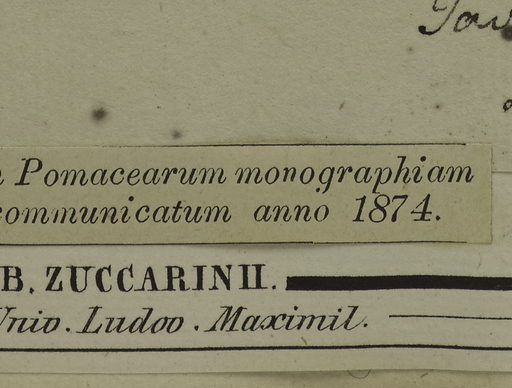 Pomacearum monographiam
communicatum anno 1874.
B. ZUCCARINII.
Univ. Ludov. Maximil.